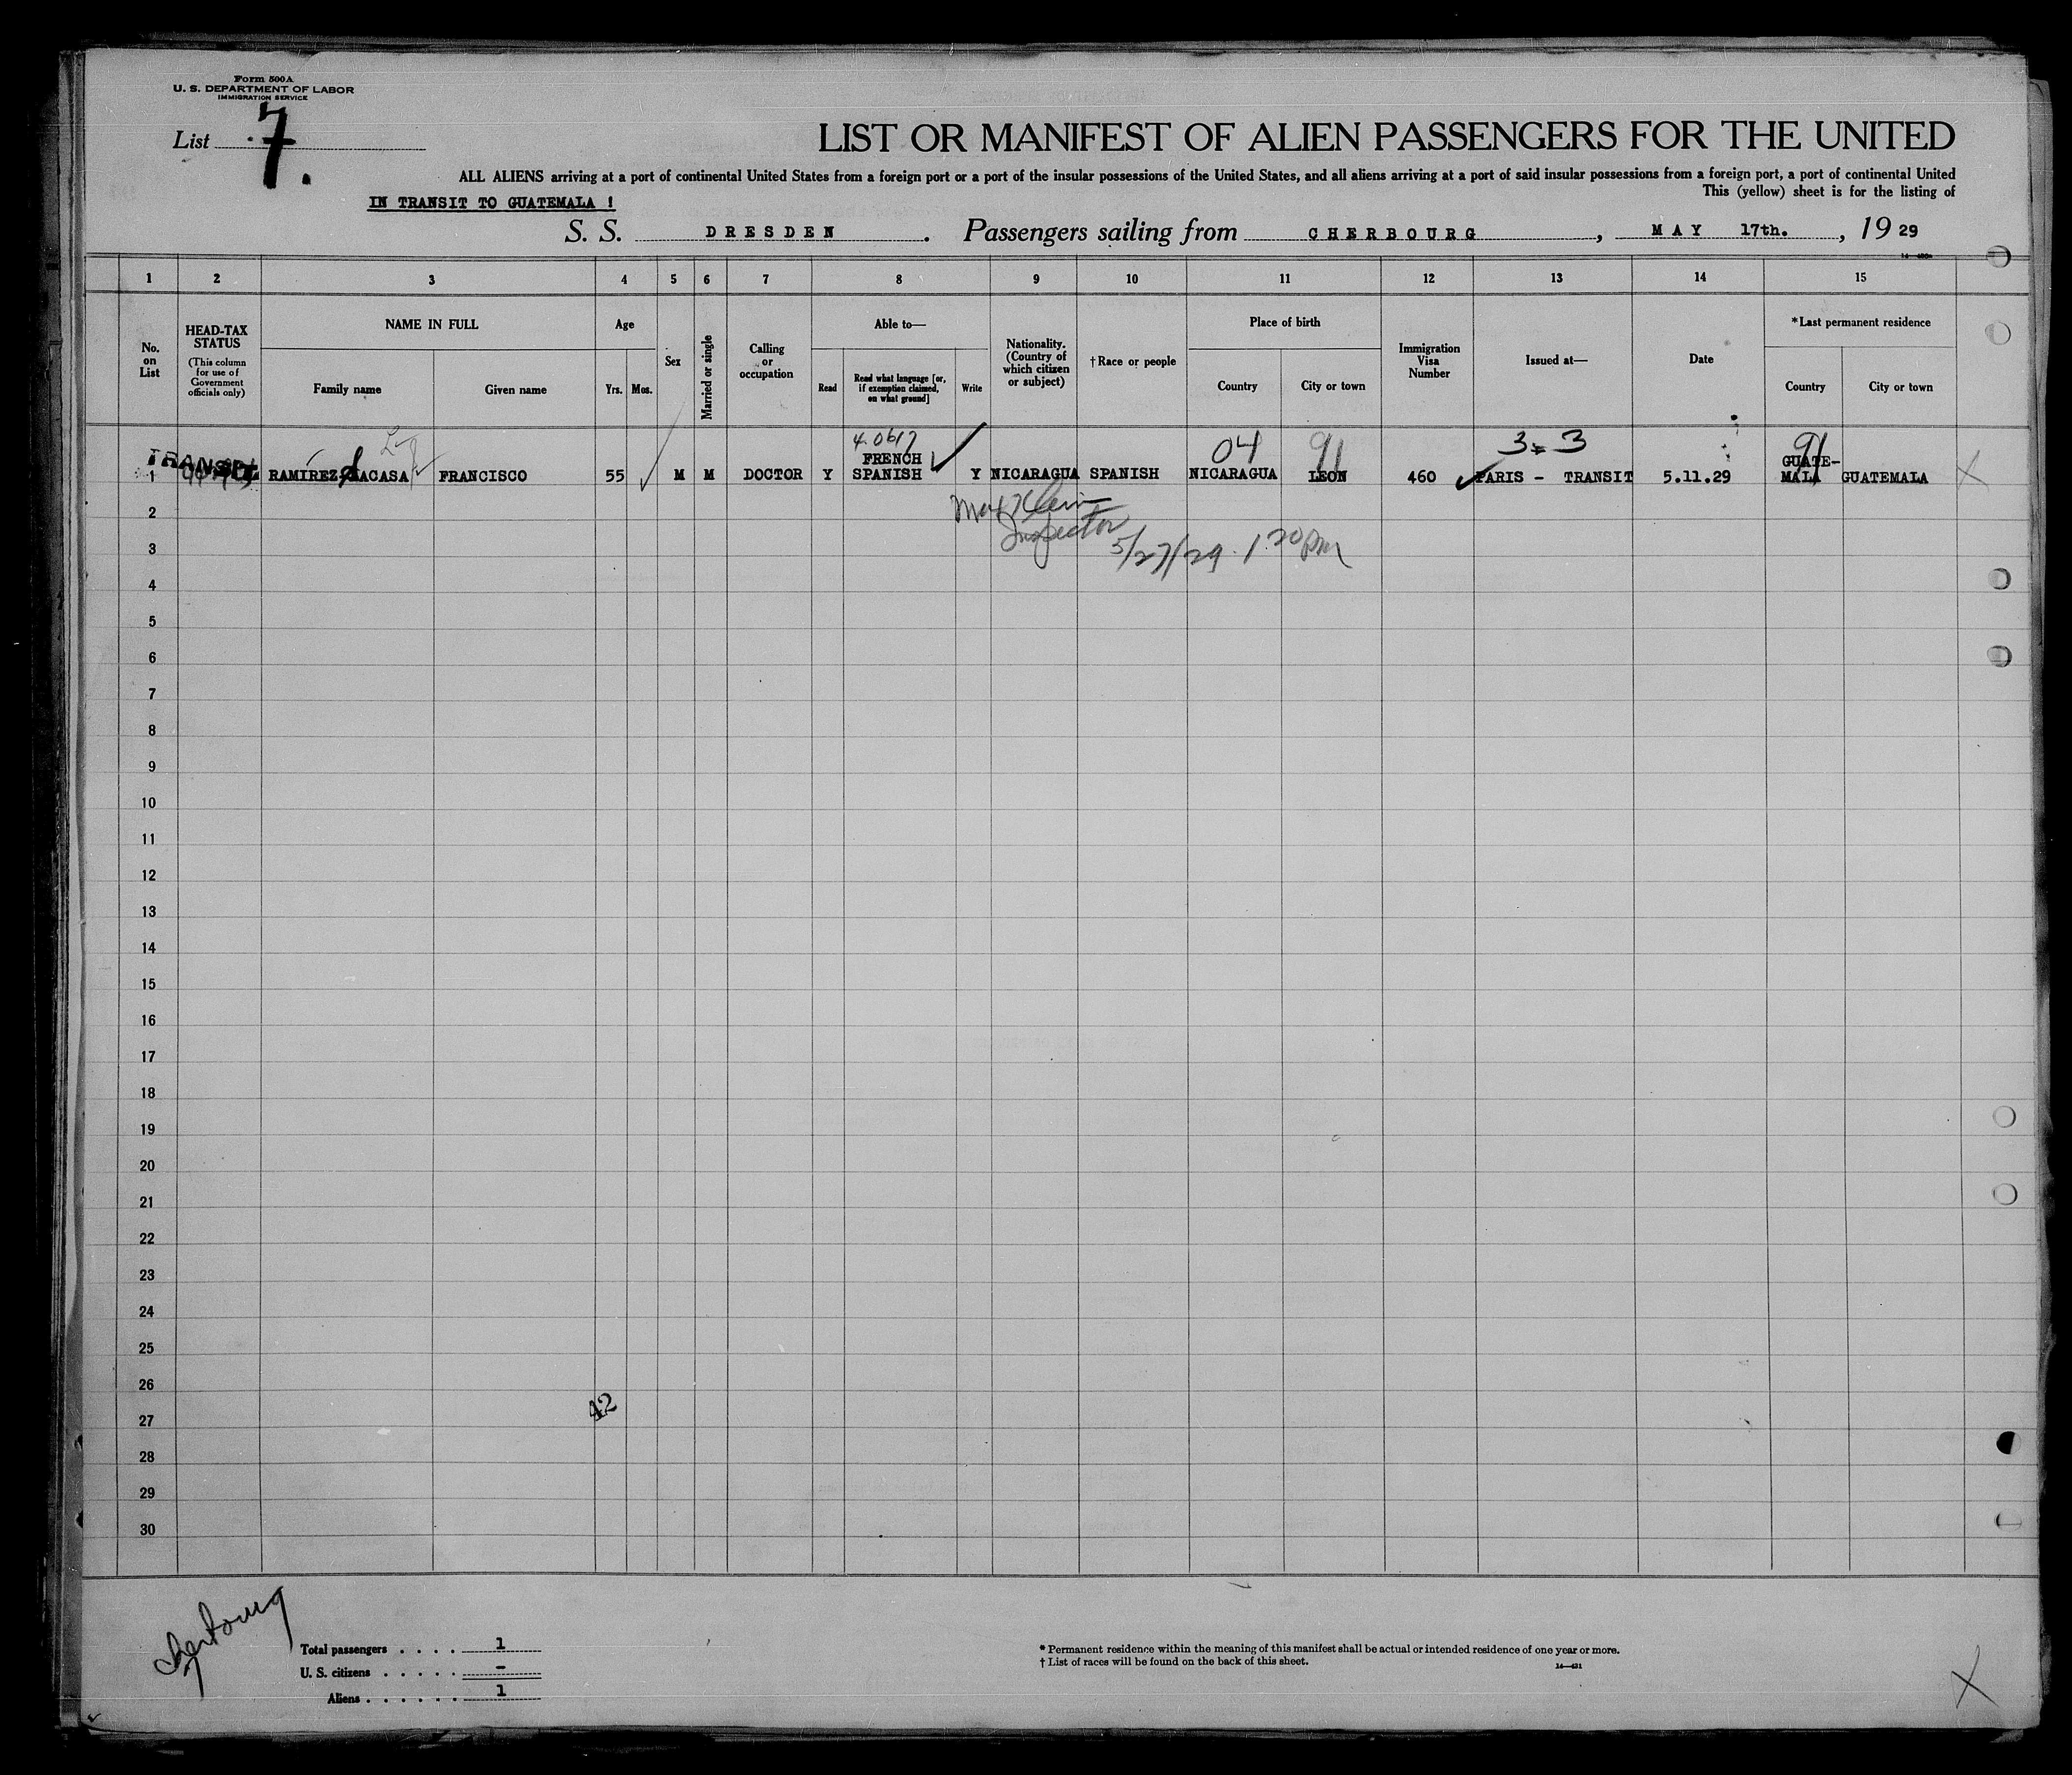 Form 500A
U. S. DEPARTMENT OF LABOR
IMMIGRATION SERVICE
List 7.
LIST OR MANIFEST OF ALIEN PASSENGERS FOR THE UNITED
ALL ALIENS arriving at a port of continental United States from a foreign port or a port of the insular possessions of the United States, and all aliens arriving at a port of said insular possessions from a foreign port, a port of continental United
This (yellow) sheet is for the listing of
IN TRANSIT TO GUATEMALA !
S. S. DRESDEN. Passengers sailing from CHERBOURG, MAY 17th., 19 29
1 2 3 4 5 6 7 8 9 10 11 12 13 14 15
No. on List
HEAD-TAX STATUS
(This column for use of Government officials only)
NAME IN FULL
Family name
Given name
Age
Yrs. Mos.
Sex
Married or single
Calling or occupation
Able to—
Read
Read what language [or, if exemption claimed, on what ground]
Write
Nationality. (Country of which citizen or subject)
†Race or people
Place of birth
Country
City or town
Immigration Visa Number
Issued at—
Date
*Last permanent residence
Country
City or town
04 91 3=3 91
TRANSIT
1 RAMIREZ FRANCISCO 55 M M DOCTOR Y FRENCH SPANISH Y NICARAGUA SPANISH NICARAGUA LEON 460 PARIS - TRANSIT 5.11.29 GUATE-MALA GUATEMALA X
Inspector
5/27/29 1 20 pm
2
3
4
5
6
7
8
9
10
11
12
13
14
15
16
17
18
19
20
21
22
23
24
25
26
42
27
28
29
30
Cherbourg
Total passengers . . . . 1
U. S. citizens . . . . . -
Aliens . . . . . . 1
* Permanent residence within the meaning of this manifest shall be actual or intended residence of one year or more.
† List of races will be found on the back of this sheet.
X